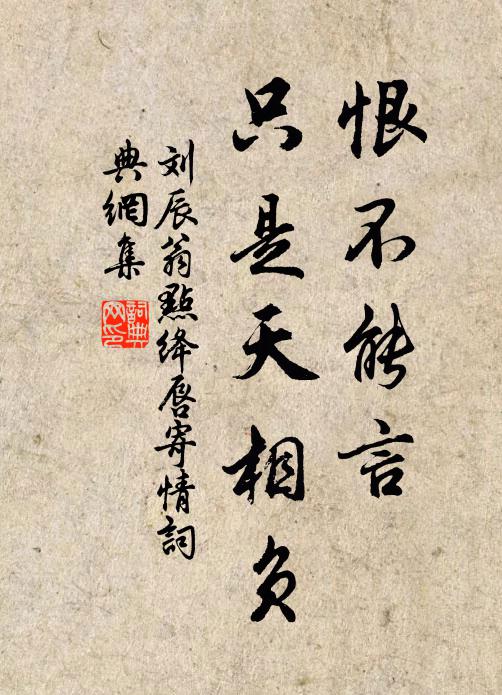 恨不能言
只是天相负
刘辰翁點绛唇寄情詞
典網集
詞典网印